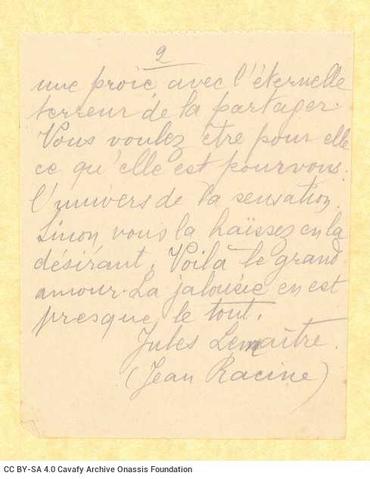 2
une proie avec l'éternelle
terreur de la partager.
Vous voulez être pour elle
ce qu'elle est pour vous.
l'univers de la sensation.
Sinon vous la haïssez en la
désirant. Voilà le grand
amour. La jalousie en est
presque le tout.
Jules Lemaître.
(Jean Racine)
CC BY-SA 4.0 Cavafy Archive Onassis Foundation